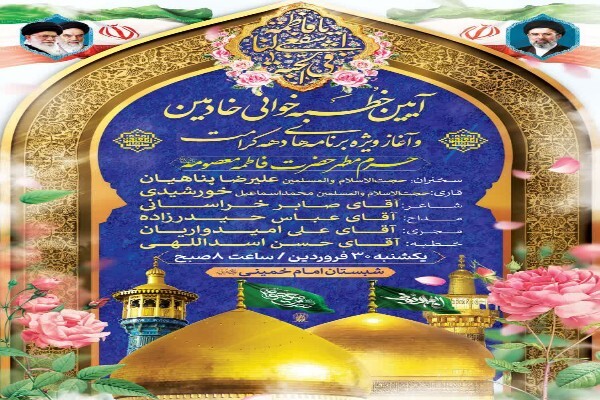 یا فاطمة اشفعی لنا فی الجنة
آیین خطبه خوانی خادمین
و آغاز ویژه برنامه‌های دهه کرامت
حرم مطهر حضرت فاطمه معصومه
سخنران: حجت‌الاسلام والمسلمین علیرضا پناهیان
قاری: حجت‌الاسلام والمسلمین محمداسماعیل خورشیدی
شاعر: آقای صابر خراسانی
مداح: آقای عباس حیدرزاده
مجری: آقای علی امیدواریان
خطبه: آقای حسن اسداللهی
یکشنبه ۳۰ فروردین / ساعت ۸ صبح
شبستان امام خمینی